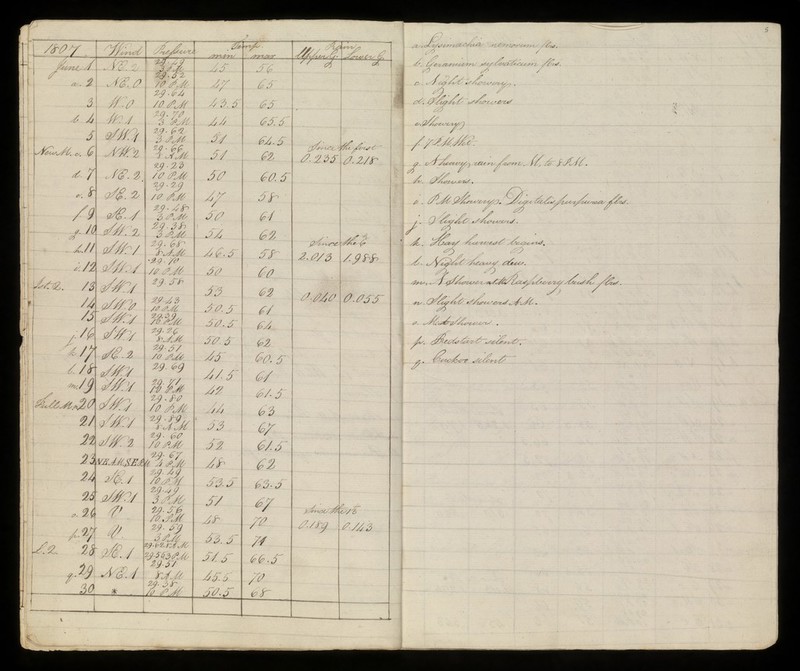 1807 Wind Pressure Temp. Rain
min max Upper G. Lower G.
June 1 NE.2 45 56
a. 2 NE.0 29.52 10 P.M 47 65
3 W.0 29.64 10 P.M 43.5 65
b. 4 W.1 29.70 3 P.M 44 65.5
5 SW.1 29.62 3 P.M 51 64.5 Since the first
New M. c. 6 NW.2 29.66 8 A.M 51 62 0.235 0.218
d. 7 NE.2 29.23 10 P.M 50 60.5
e. 8 SE.2 29.29 10 P.M 47 58
f. 9 SE.1 29.48 3 P.M 50 61
g. 10 SW.2 29.38 3 P.M 54 62 Since the 6
h. 11 SW.1 29.68 8 A.M 46.5 58 2.013 1.988
i. 12 SW.1 29.70 10 P.M 50 60
1st Q. 13 SW.1 29.58 53 62 0.040 0.055
14 SW.0 29.43 10 P.M 50.5 61
15 SW.1 29.39 10 P.M 50.5 64
j. 16 SW.1 29.26 8 A.M 50.5 62
k. 17 SE.2 29.51 10 P.M 45 60.5
l. 18 SW.1 29.69 41.5 61
m. 19 SW.1 29.71 10 P.M 42 61.5
Full M. n. 20 SW.1 29.80 10 P.M 44 63
21 SW.1 29.89 8 A.M 53 67
22 SW.2 29.60 10 P.M 52 61.5
23 29.67 4 P.M 48 62
24 SE.1 29.49 10 P.M 53.5 63.5
25 SW.1 29.49 3 P.M 51 67
o. 26 V 29.56 10 P.M 48 70 Since the 13
p. 27 V 29.59 3 P.M 53.5 71 0.189 0.143
L.Q. 28 SE.1 51.5 66.5
q. 29 NE.1 29.51 8 A.M 45.5 70
30 29.38 10 P.M 50.5 68
5
a. Lysimachia nemorum fls.
b. Geranium sylvaticum fls.
c. Night showery.
d. Slight showers
e. Showery
f.
g. N heavy, rain from M. to 8 P.M.
h. Showers.
i. P.M Showery. Digitalis purpurea fls.
j. Slight showers.
k. Hay harvest begins.
l. Night heavy dew.
m. A Shower at Raspberry bush fls.
n. Slight showers A.M.
o. Shower.
p. Redstart silent.
q. Cuckoo silent